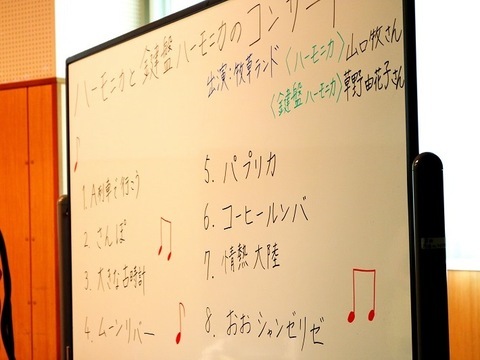 ハーモニカと鍵盤ハーモニカのコンサート
出演:牧草ランド〈ハーモニカ〉山口牧さん
〈鍵盤ハーモニカ〉草野由花子さん
1. A列車で行こう
2. さんぽ
3. 大きな古時計
4. ムーンリバー
5. パプリカ
6. コーヒールンバ
7. 情熱大陸
8. おおシャンゼリゼ